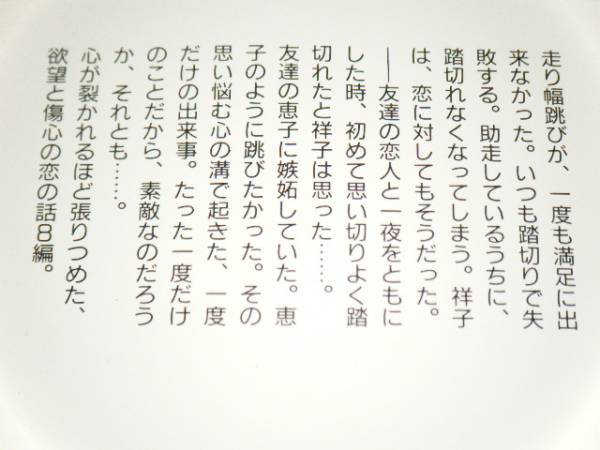 走り幅跳びが、一度も満足に出
来なかった。いつも踏切りで失
敗する。助走しているうちに、
踏切れなくなってしまう。祥子
は、恋に対してもそうだった。
――友達の恋人と一夜をともに
した時、初めて思い切りよく踏
切れたと祥子は思った……。
友達の恵子に嫉妬していた。恵
子のように跳びたかった。その
思い悩む心の溝で起きた、一度
だけの出来事。たった一度だけ
のことだから、素敵なのだろう
か、それとも……。
心が裂かれるほど張りつめた、
欲望と傷心の恋の話8編。